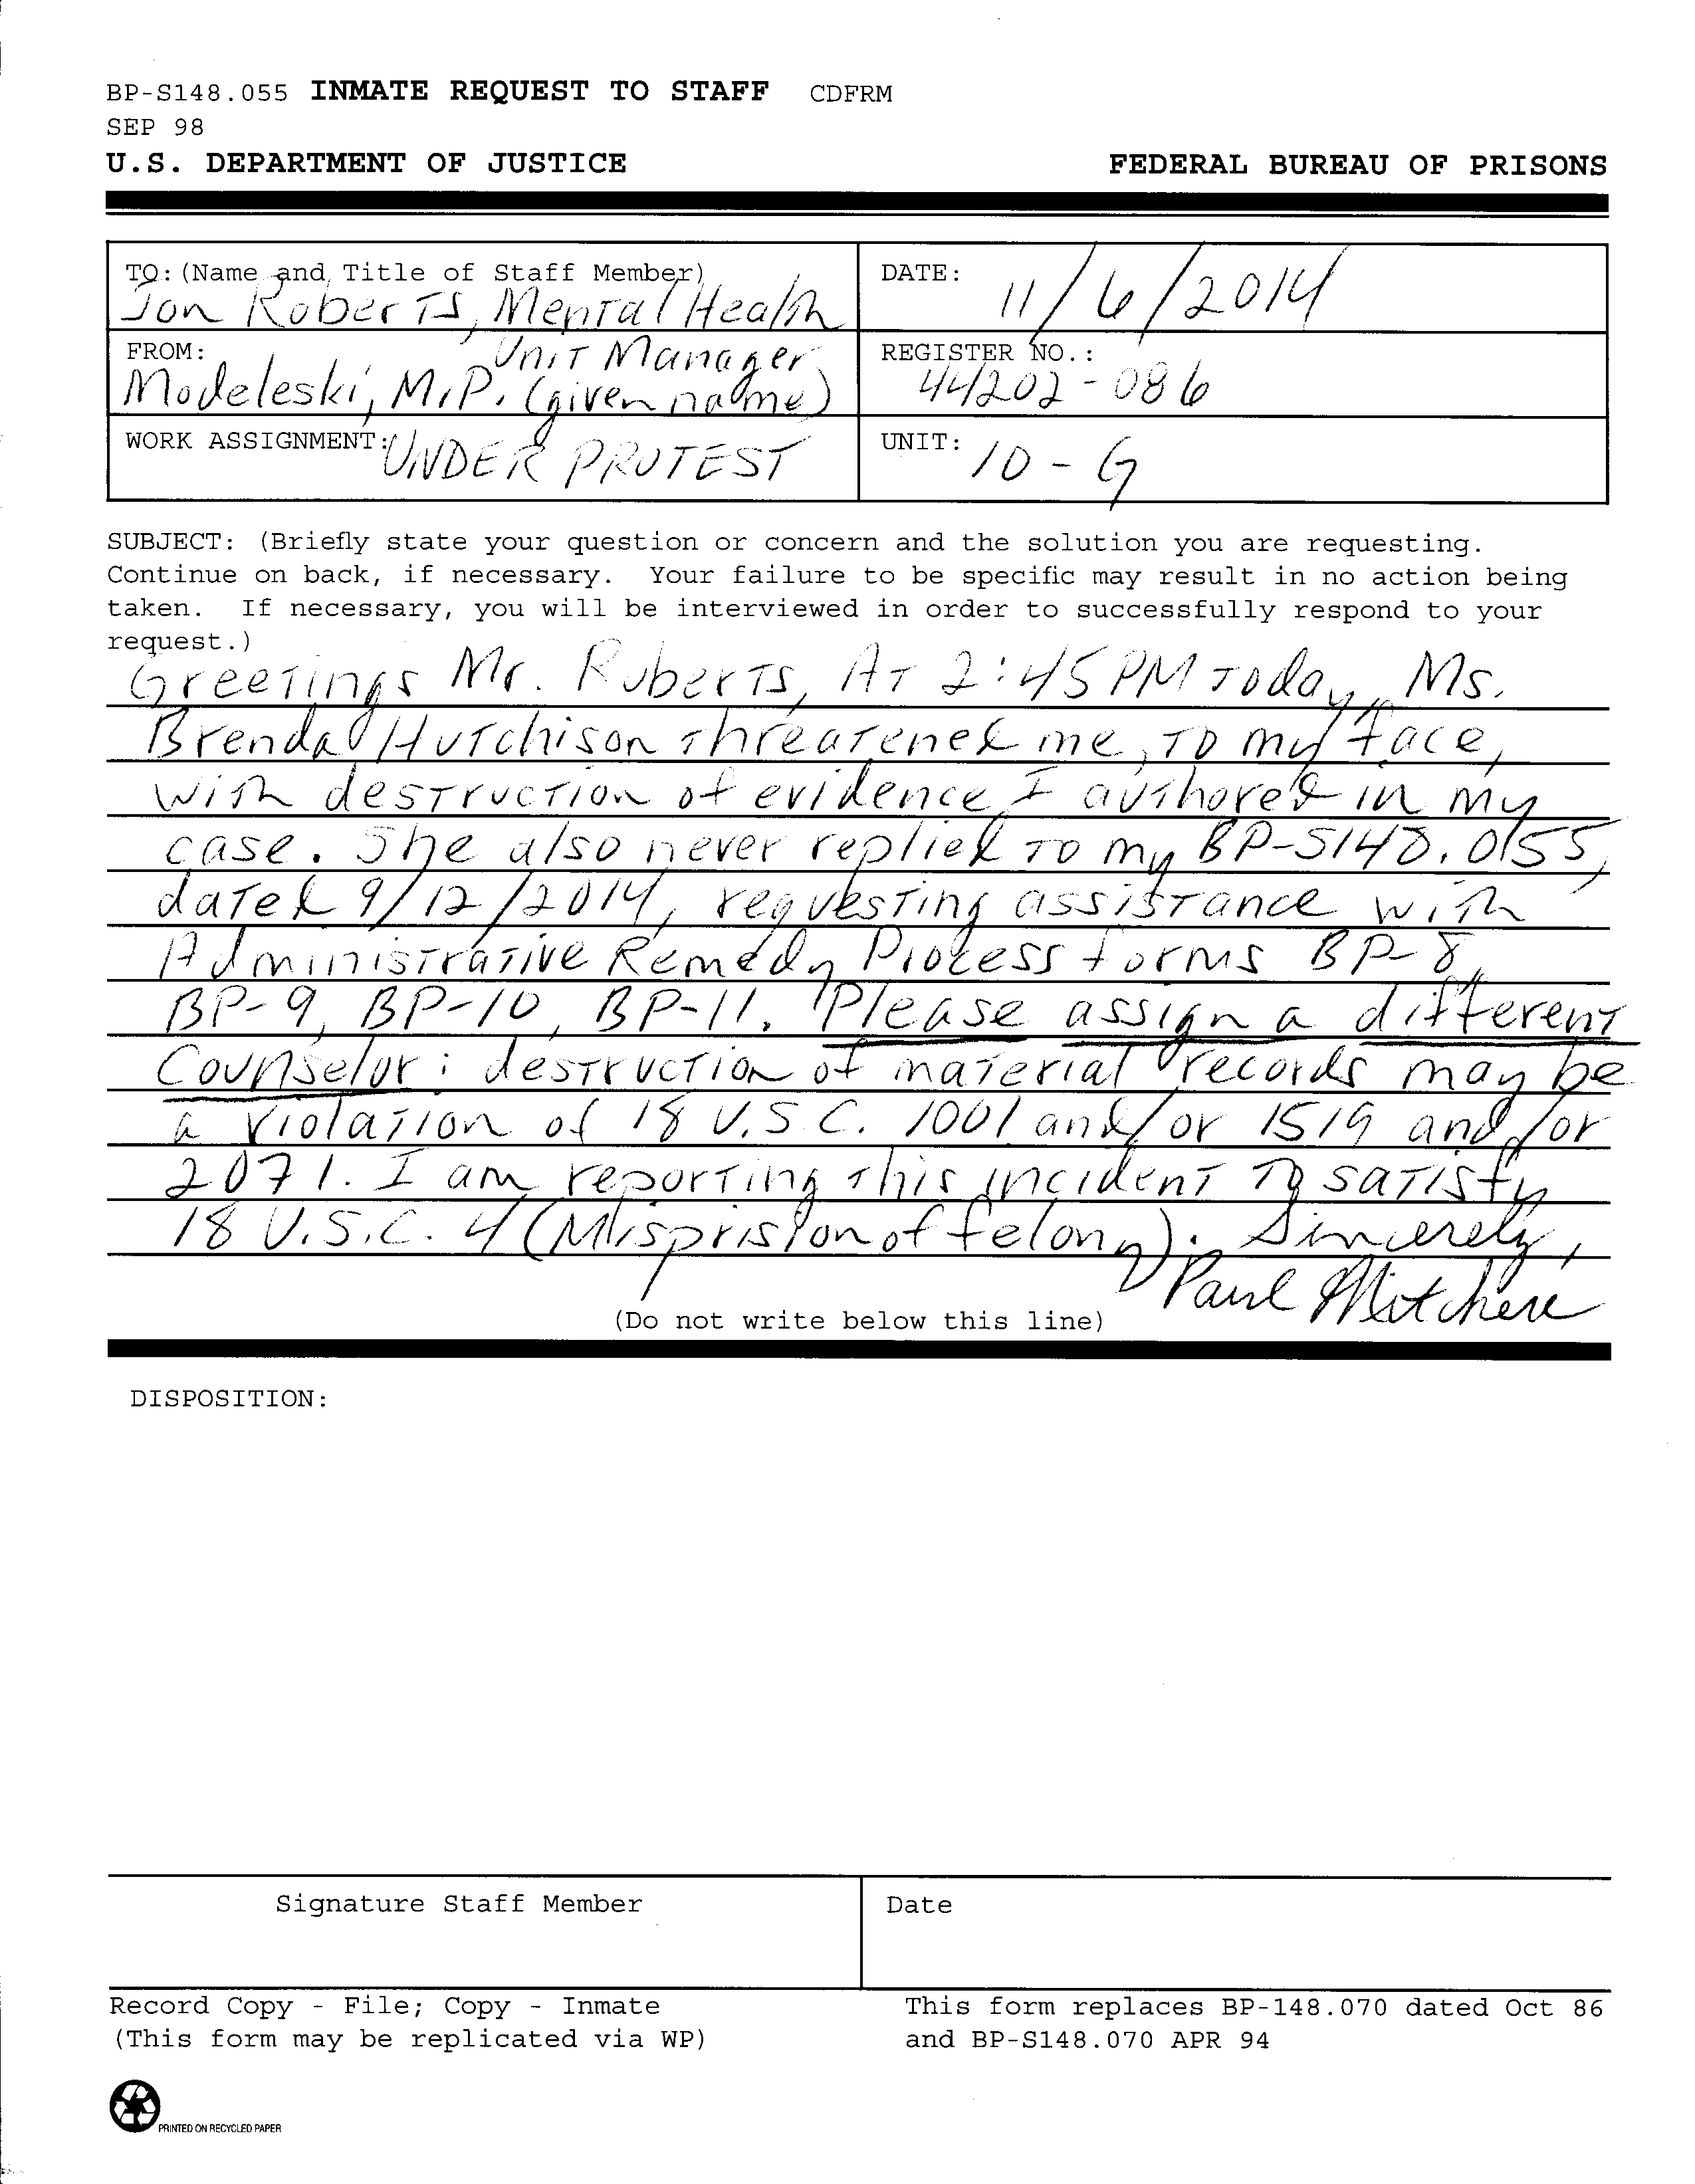 BP-S148.055 INMATE REQUEST TO STAFF CDFRM
SEP 98
U.S. DEPARTMENT OF JUSTICE FEDERAL BUREAU OF PRISONS
TO: (Name and Title of Staff Member)
Jon Roberts, Mental Health
Unit Manager
DATE: 11/6/2014
FROM:
Modeleski, M.P. (given name)
REGISTER NO.:
44202-086
WORK ASSIGNMENT: UNDER PROTEST
UNIT: 10-G
SUBJECT: (Briefly state your question or concern and the solution you are requesting.
Continue on back, if necessary. Your failure to be specific may result in no action being
taken. If necessary, you will be interviewed in order to successfully respond to your
request.)
Greetings Mr. Roberts, At 2:45 PM today, Ms.
Brenda Hutchison threatened me, to my face,
with destruction of evidence I authored in my
case. She also never replied to my BP-S148.055,
dated 9/12/2014, requesting assistance with
Administrative Remedy Process forms BP-8,
BP-9, BP-10, BP-11. Please assign a different
Counselor: destruction of material records may be
a violation of 18 U.S.C. 1001 and/or 1519 and/or
2071. I am reporting this incident to satisfy
18 U.S.C. 4 (Misprision of felony). Sincerely,
Paul Mitchell
(Do not write below this line)
DISPOSITION:
Signature Staff Member
Date
Record Copy - File; Copy - Inmate
(This form may be replicated via WP)
This form replaces BP-148.070 dated Oct 86
and BP-S148.070 APR 94
PRINTED ON RECYCLED PAPER